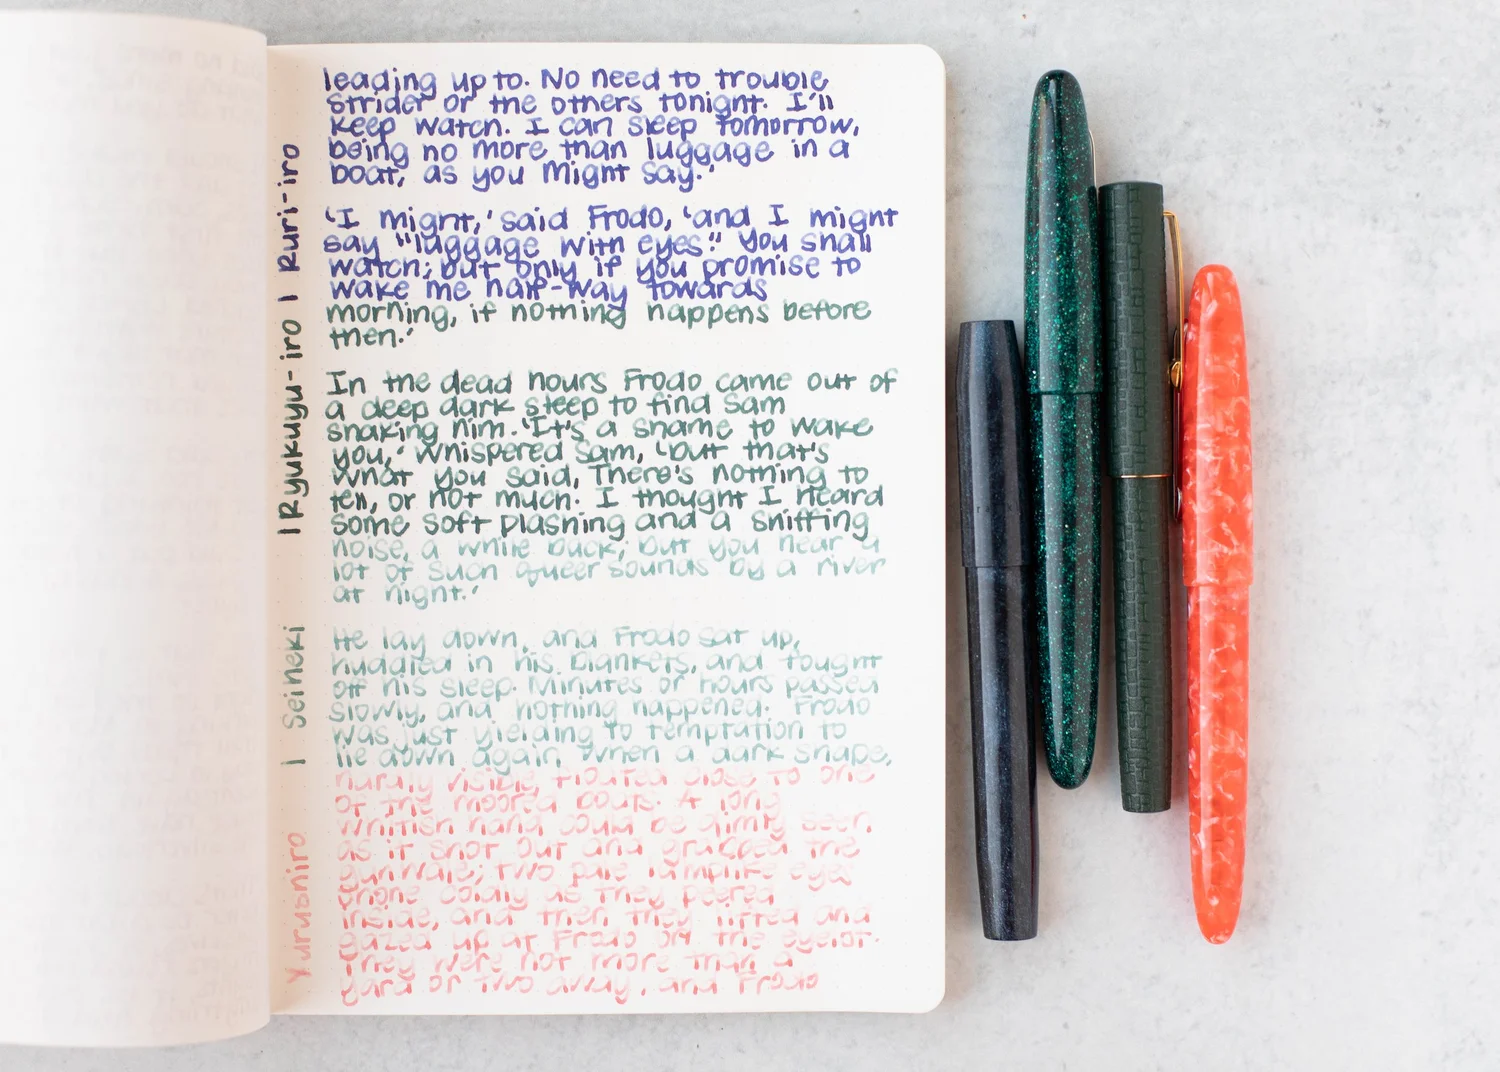 leading up to. No need to trouble
strider or the others tonight. I'll
keep watch. I can sleep tomorrow,
being no more than luggage in a
boat, as you might say.'
'I might,' said Frodo, 'and I might
say "luggage with eyes." You shall
watch; but only if you promise to
wake me half-way towards
morning, if nothing happens before
then.'
In the dead hours Frodo came out of
a deep dark sleep to find Sam
shaking him. 'It's a shame to wake
you,' whispered Sam, 'but that's
what you said, There's nothing to
tell, or not much. I thought I heard
some soft plashing and a sniffing
noise, a while back; but you hear a
lot of such queer sounds by a river
at night.'
He lay down, and Frodo sat up,
huddled in his blankets, and fought
off his sleep. Minutes or hours passed
slowly, and nothing happened. Frodo
was just yielding to temptation to
lie down again when a dark shape,
hardly visible, floated close to one
of the moored boats. A long
whitish hand could be dimly seen
as it shot out and grabbed the
gunwale; two pale lamplike eyes
shone coldly as they peered
inside, and then they lifted and
gazed up at Frodo on the eyelot.
They were not more than a
yard or two away, and Frodo
Yurushiro | Seiheki | Ryukyu-iro | Ruri-iro